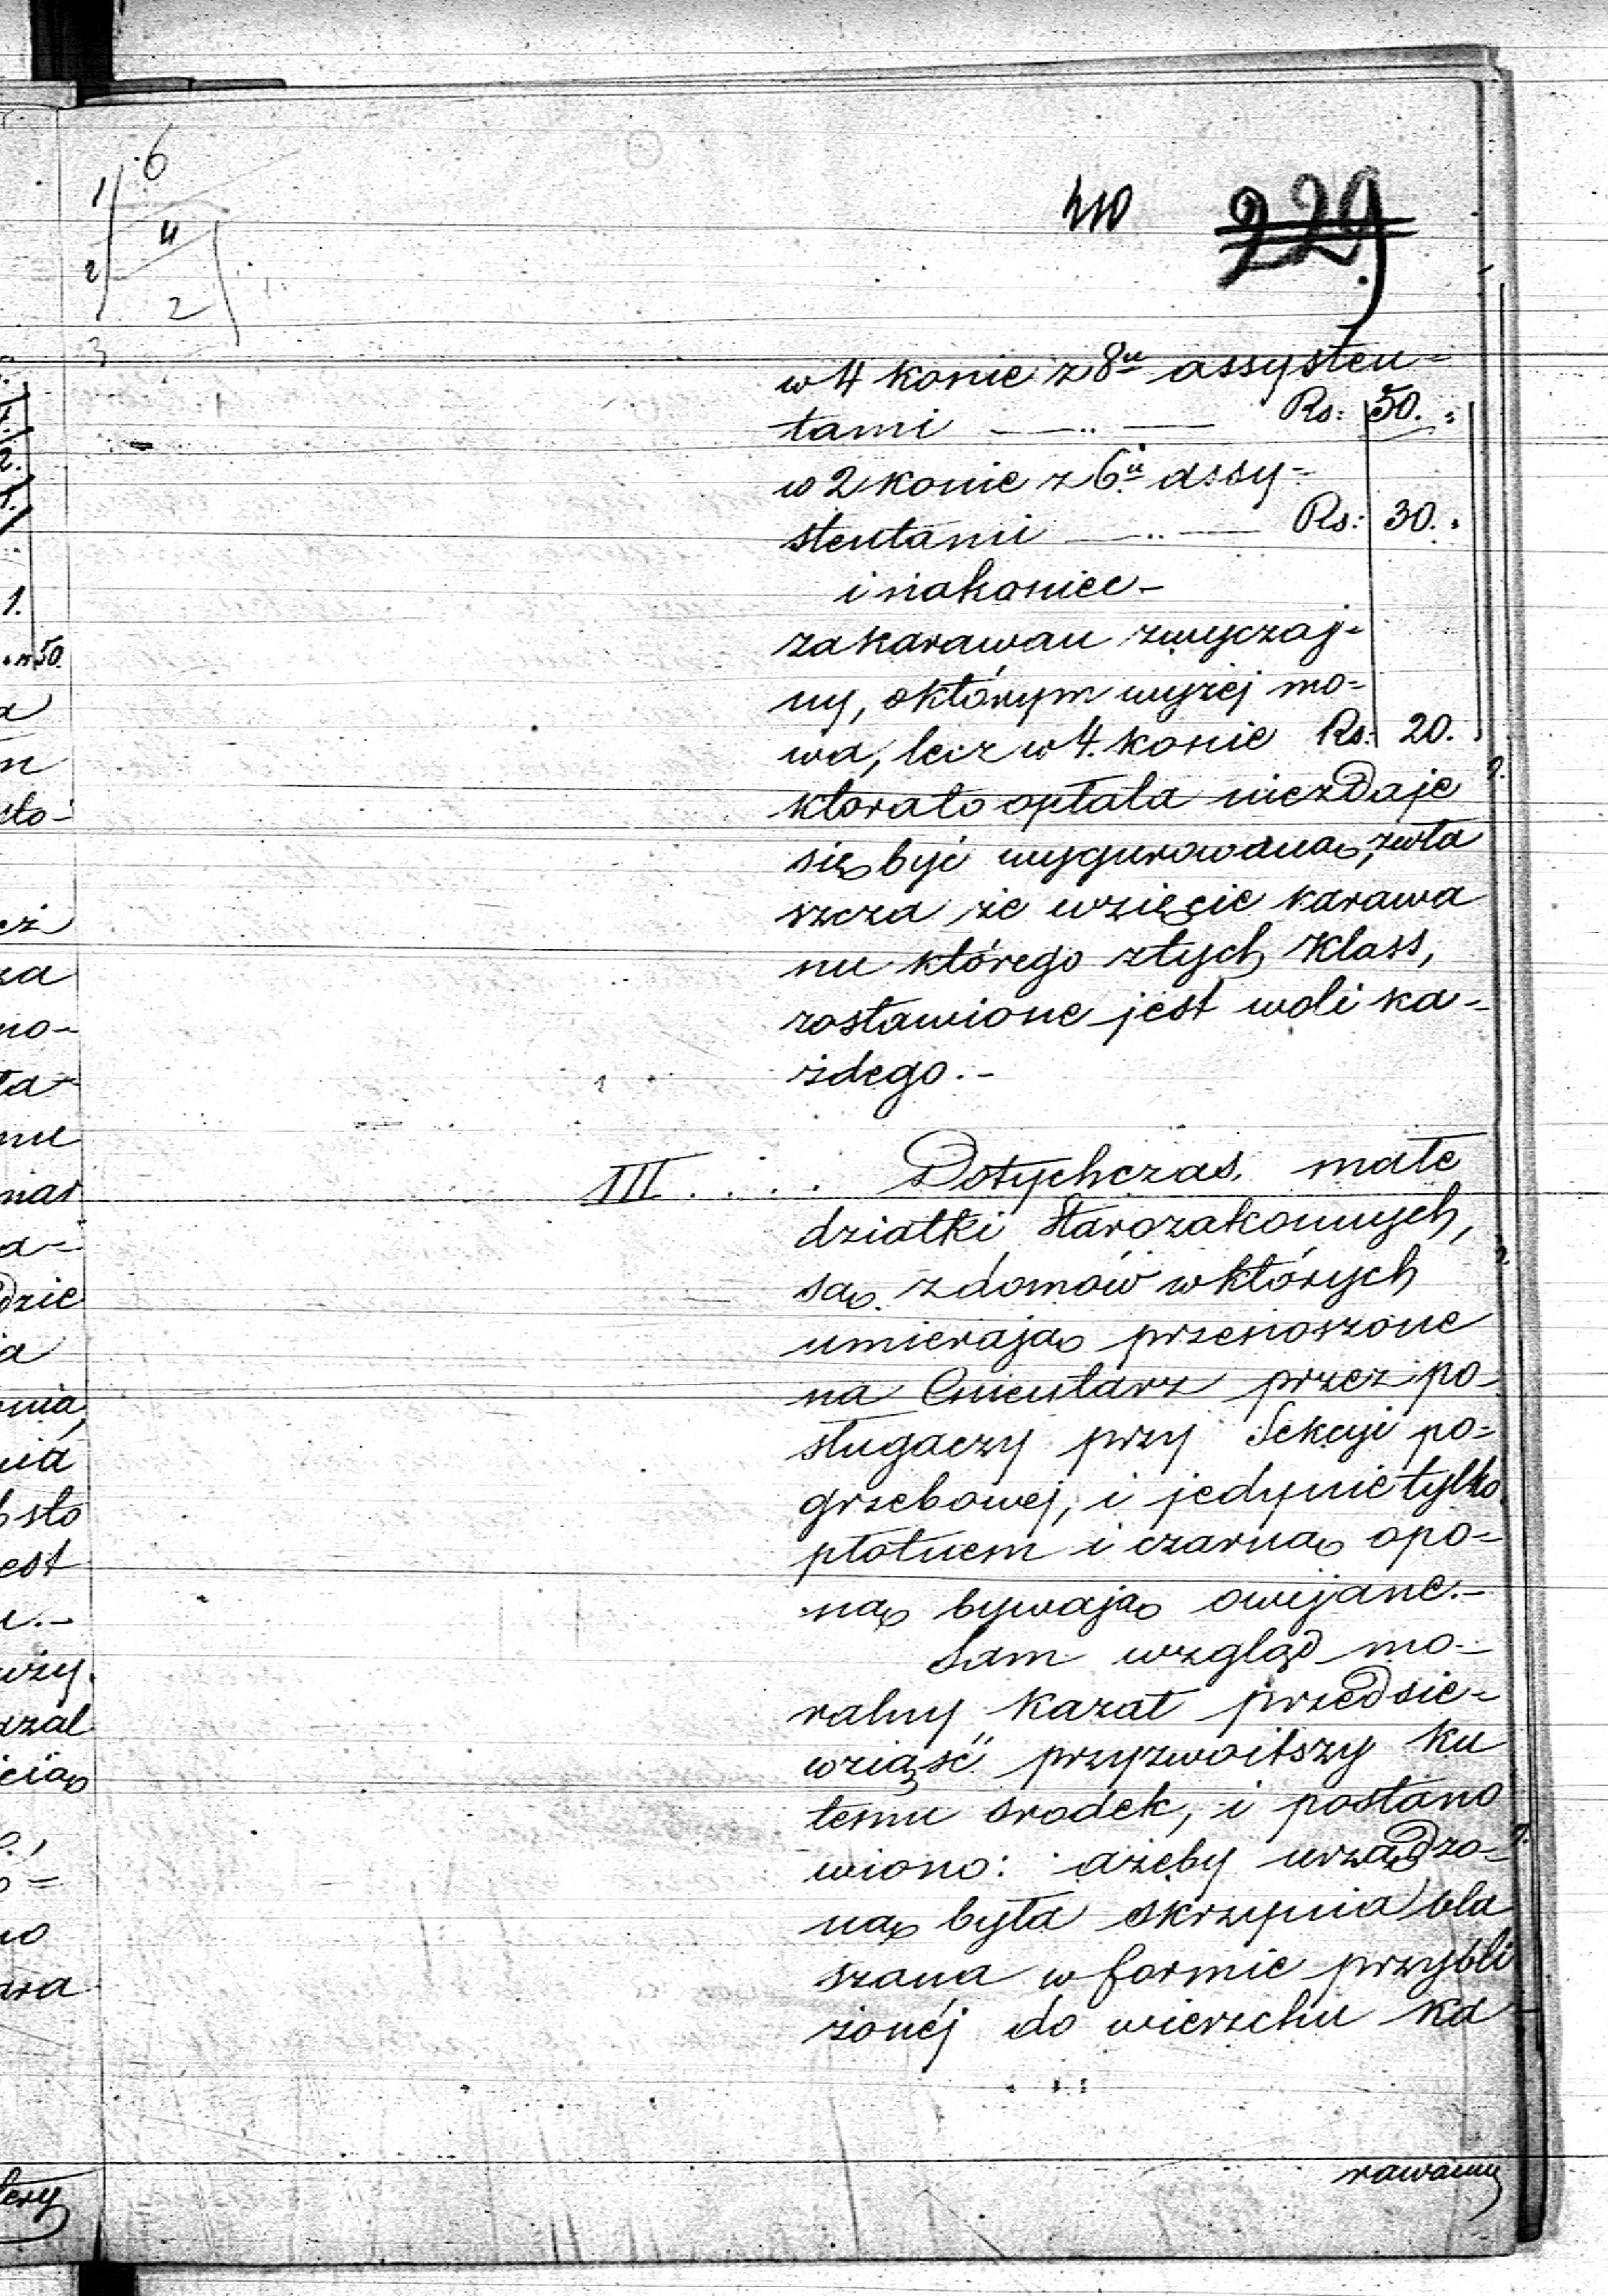 6
1
4
2
2
3
210 229
w 4 konie z 8u assysten=
tami —..— Rs: 50. "
w 2 konie z 6u assy=
stentami —..— Rs: 30. "
i nakoniec –
za karawan zwyczaj=
ny, o którym wyżej mo=
wa, lecz w 4. konie Rs: 20.
ktorato opłata niezdaje
się być wygurowaną, zwła
szcza że wzięcie karawa
nu którego z tych klass,
zostawione jest woli ka=
żdego. –
III. . . . Dotychczas, małe
dziatki Starozakonnych,
są z domów w których
umierają przenoszone
na Cmentarz przez po=
sługaczy przy Sekcyi po=
grzebowej, i jedynie tylko
płótnem i czarną opo=
ną bywają owijane. –
Sam wzgląd mo=
ralny kazał przedsie=
wziąść przyzwoitszy ku
temu srodek, i postano
wiono: ażeby urządzo=
ną była skrzynia bla
szana w formie przybli
żonéj do wierzchu ka
rawanu